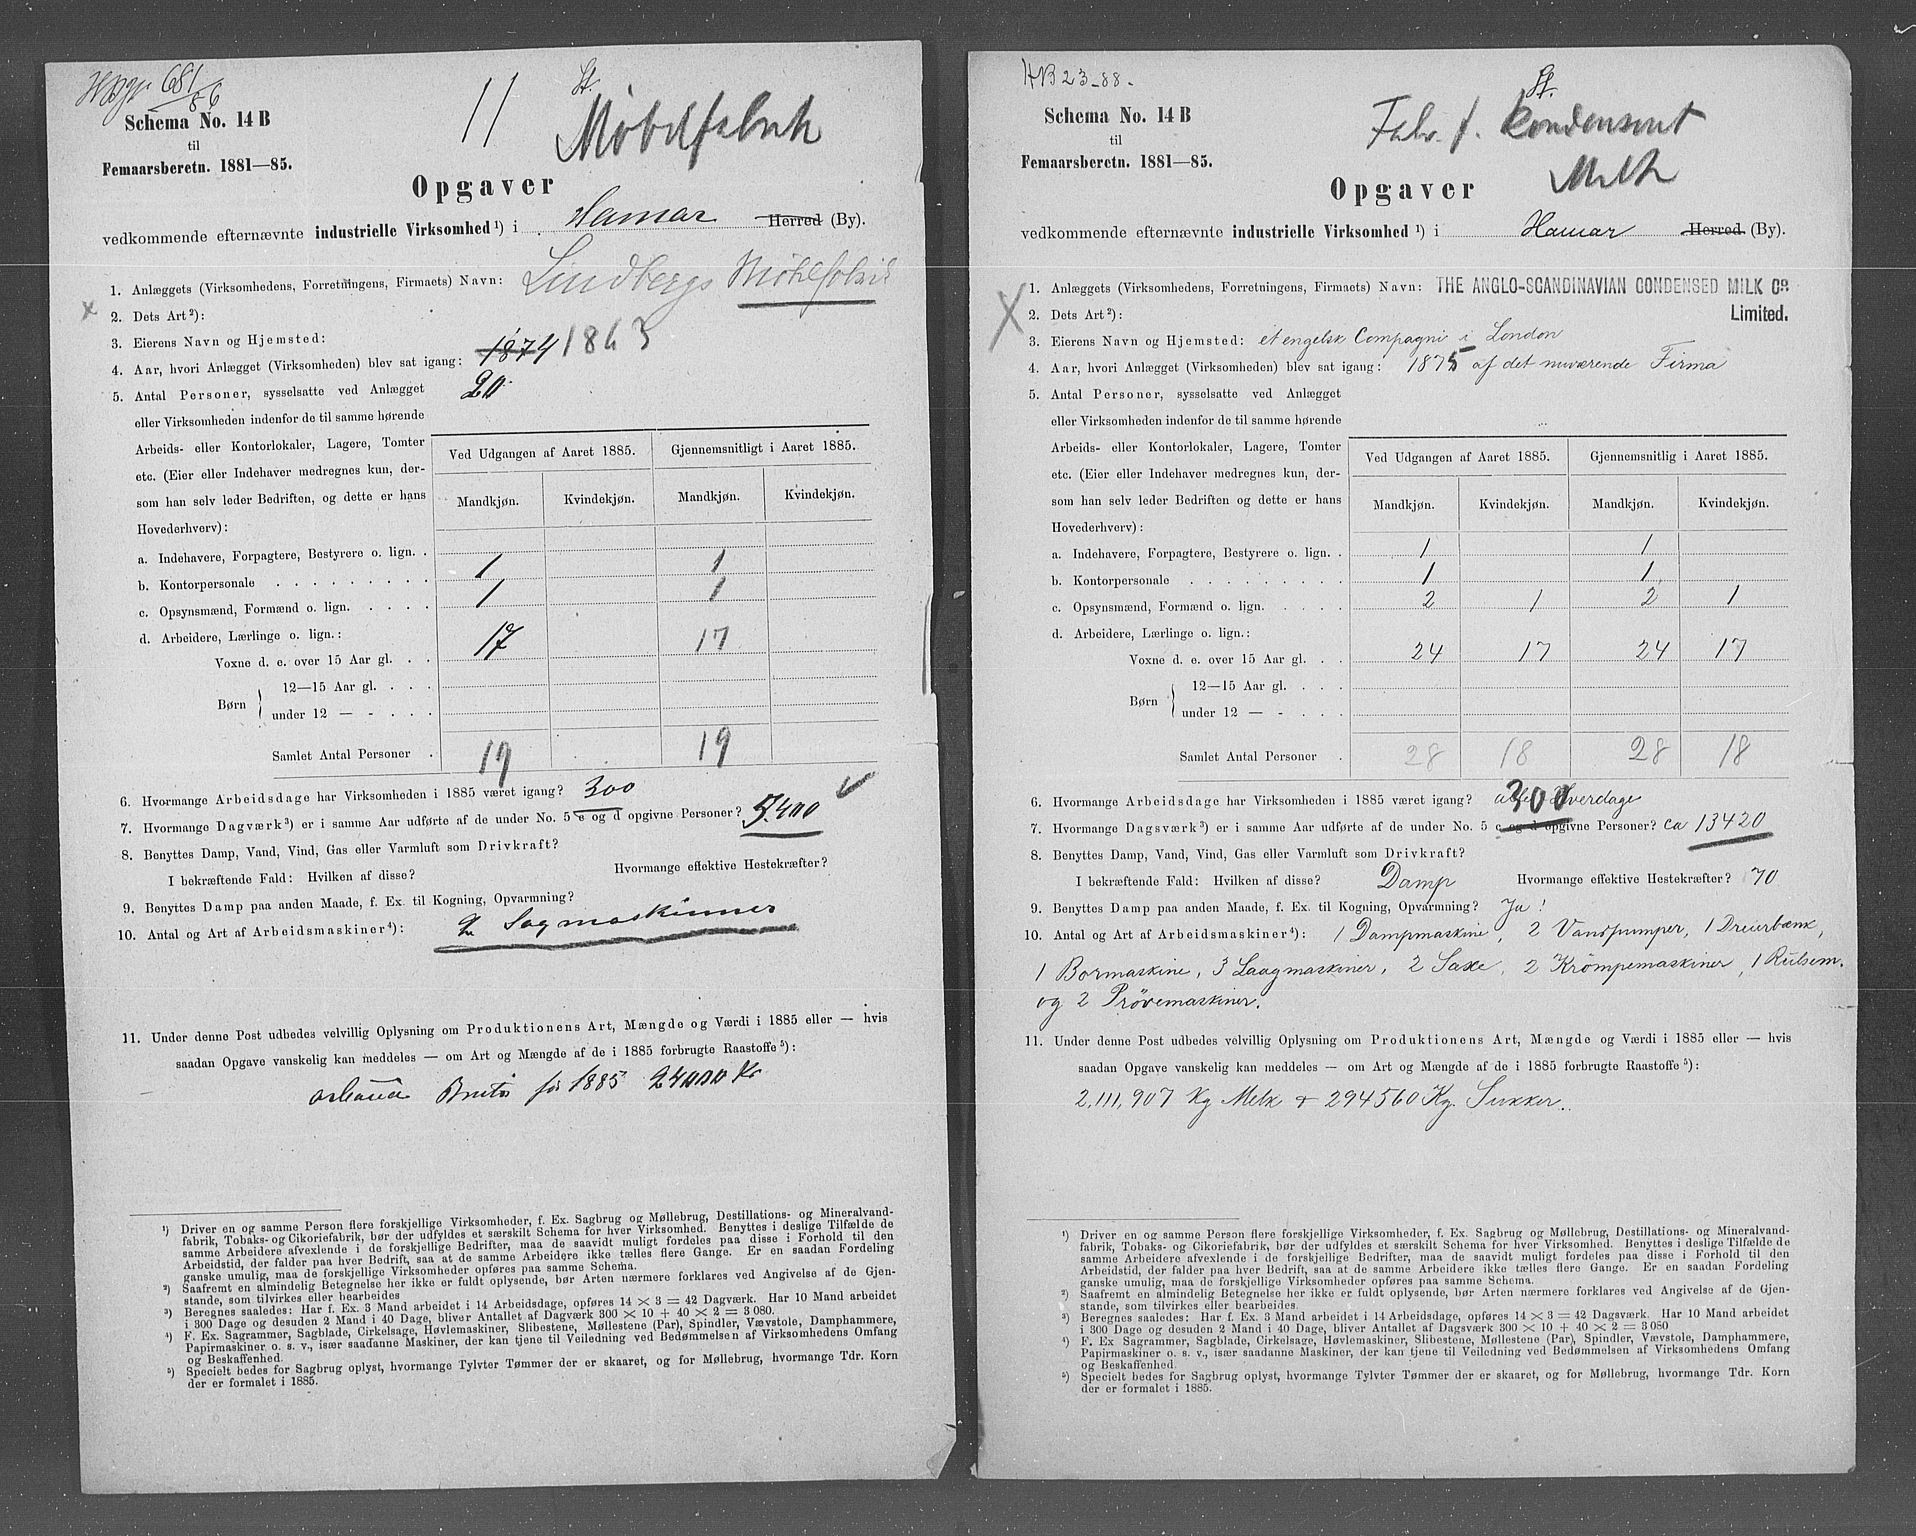 681/86
Schema No. 14 B
til
Femaarsberetn. 1881—85.
11
St.
Møbelfabrik
Opgaver
vedkommende efternævnte industrielle Virksomhed ¹) i Hamar Herred (By).
1. Anlæggets (Virksomhedens, Forretningens, Firmaets) Navn: Lindbergs Møblfabrik
2. Dets Art ²):
3. Eierens Navn og Hjemsted:
4. Aar, hvori Anlægget (Virksomheden) blev sat igang: 1874 1863
5. Antal Personer, sysselsatte ved Anlægget 20
eller Virksomheden indenfor de til samme hørende
Arbeids- eller Kontorlokaler, Lagere, Tomter
etc. (Eier eller Indehaver medregnes kun, der-
som han selv leder Bedriften, og dette er hans
Hovederhverv):
Ved Udgangen af Aaret 1885. Gjennemsnitligt i Aaret 1885.
Mandkjøn. Kvindekjøn. Mandkjøn. Kvindekjøn.
a. Indehavere, Forpagtere, Bestyrere o. lign. . 1 1
b. Kontorpersonale . . . . . . . . .
c. Opsynsmænd, Formænd o. lign. . . . . 1 1
d. Arbeidere, Lærlinge o. lign.:
Voxne d. e. over 15 Aar gl. . . 17 17
Børn 12—15 Aar gl. . . .
under 12 — - . . . .
Samlet Antal Personer . 19 19
6. Hvormange Arbeidsdage har Virksomheden i 1885 været igang? 300
7. Hvormange Dagværk ³) er i samme Aar udførte af de under No. 5 c og d opgivne Personer? 5.400
8. Benyttes Damp, Vand, Vind, Gas eller Varmluft som Drivkraft?
I bekræftende Fald: Hvilken af disse? Hvormange effektive Hestekræfter?
9. Benyttes Damp paa anden Maade, f. Ex. til Kogning, Opvarmning?
10. Antal og Art af Arbeidsmaskiner ⁴): 2 Sagmaskinner
11. Under denne Post udbedes velvillig Oplysning om Produktionens Art, Mængde og Værdi i 1885 eller — hvis
saadan Opgave vanskelig kan meddeles — om Art og Mængde af de i 1885 forbrugte Raastoffe ⁵):
Brutto for 1885 24000 Kr
¹) Driver en og samme Person flere forskjellige Virksomheder, f. Ex. Sagbrug og Møllebrug, Destillations- og Mineralvand-
fabrik, Tobaks- og Cikoriefabrik, bør der udfyldes et særskilt Schema for hver Virksomhed. Benyttes i deslige Tilfælde de
samme Arbeidere afvexlende i de forskjellige Bedrifter, maa de saavidt muligt fordeles paa disse i Forhold til den
Arbeidstid, der falder paa hver Bedrift, saa at de samme Arbeidere ikke tælles flere Gange. Er en saadan Fordeling
ganske umulig, maa de forskjellige Virksomheder opføres paa samme Schema.
²) Saafremt en almindelig Betegnelse her ikke er fuldt oplysende, bør Arten nærmere forklares ved Angivelse af de Gjen-
stande, som tilvirkes eller bearbeides
³) Beregnes saaledes: Har f. Ex. 3 Mand arbeidet i 14 Arbeidsdage, opføres 14 × 3 = 42 Dagværk. Har 10 Mand arbeidet
i 300 Dage og desuden 2 Mand i 40 Dage, bliver Antallet af Dagværk 300 × 10 + 40 × 2 = 3 080.
⁴) F. Ex. Sagrammer, Sagblade, Cirkelsage, Høvlemaskiner, Slibestene, Møllestene (Par), Spindler, Vævstole, Damphammere,
Papirmaskiner o. s. v., især saadanne Maskiner, der kan tjene til Veiledning ved Bedømmelsen af Virksomhedens Omfang
og Beskaffenhed.
⁵) Specielt bedes for Sagbrug oplyst, hvormange Tylvter Tømmer der er skaaret, og for Møllebrug, hvormange Tdr. Korn
der er formalet i 1885.
HB 23-88.
Schema No. 14 B
til
Femaarsberetn. 1881—85.
St.
Fabr. f. Kondenseret
Melk
Opgaver
vedkommende efternævnte industrielle Virksomhed ¹) i Hamar Herred (By).
1. Anlæggets (Virksomhedens, Forretningens, Firmaets) Navn: THE ANGLO-SCANDINAVIAN CONDENSED MILK Co
Limited.
2. Dets Art ²):
3. Eierens Navn og Hjemsted: et engelsk Compagni i London
4. Aar, hvori Anlægget (Virksomheden) blev sat igang: 1875 af det nuværende Firma
5. Antal Personer, sysselsatte ved Anlægget
eller Virksomheden indenfor de til samme hørende
Arbeids- eller Kontorlokaler, Lagere, Tomter
etc. (Eier eller Indehaver medregnes kun, der-
som han selv leder Bedriften og dette er hans
Hovederhverv):
Ved Udgangen af Aaret 1885. Gjennemsnitlig i Aaret 1885.
Mandkjøn. Kvindekjøn. Mandkjøn. Kvindekjøn.
a. Indehavere, Forpagtere, Bestyrere o. lign. . 1 1
b. Kontorpersonale . . . . . . . . . 1 1
c. Opsynsmænd, Formænd o. lign. . . . . 2 1 2 1
d. Arbeidere, Lærlinge o. lign.:
Voxne d. e. over 15 Aar gl. . . 24 17 24 17
Børn 12—15 Aar gl. . . .
under 12 — - . . . .
Samlet Antal Personer . 28 18 28 18
6. Hvormange Arbeidsdage har Virksomheden i 1885 været igang? alle Hverdage 300
7. Hvormange Dagsværk ³) er i samme Aar udførte af de under No. 5 c og d opgivne Personer? ca 13420
8. Benyttes Damp, Vand, Vind, Gas eller Varmluft som Drivkraft?
I bekræftende Fald: Hvilken af disse? Damp Hvormange effektive Hestekræfter? 70
9. Benyttes Damp paa anden Maade, f. Ex. til Kogning, Opvarmning? Ja!
10. Antal og Art af Arbeidsmaskiner ⁴): 1 Dampmaskine, 2 Vandpumper, 1 Dreierbænk,
1 Bormaskine, 3 Laagmaskiner, 2 Saxe, 2 Krömpemaskiner, 1 Rulsem.
og 2 Prövemaskiner.
11. Under denne Post udbedes velvillig Oplysning om Produktionens Art, Mængde og Værdi i 1885 eller — hvis
saadan Opgave vanskelig kan meddeles — om Art og Mængde af de i 1885 forbrugte Raastoffe ⁵):
2,111,907 Kg Melk + 294560 Kg. Sukker.
¹) Driver en og samme Person flere forskjellige Virksomheder, f. Ex. Sagbrug og Møllebrug, Destillations- og Mineralvand-
fabrik, Tobaks- og Cikoriefabrik, bør der udfyldes et særskilt Schema for hver Virksomhed. Benyttes i deslige Tilfælde de
samme Arbeidere afvexlende i de forskjellige Bedrifter, maa de saavidt muligt fordeles paa disse i Forhold til den
Arbeidstid, der falder paa hver Bedrift, saa at de samme Arbeidere ikke tælles flere Gange. Er en saadan Fordeling
ganske umulig, maa de forskjellige Virksomheder opføres paa samme Schema.
²) Saafremt en almindelig Betegnelse her ikke er fuldt oplysende, bør Arten nærmere forklares ved Angivelse af de Gjen-
stande, som tilvirkes eller bearbeides.
³) Beregnes saaledes: Har f. Ex. 3 Mand arbeidet i 14 Arbeidsdage, opføres 14 × 3 = 42 Dagsværk. Har 10 Mand arbeidet
i 300 Dage og desuden 2 Mand i 40 Dage, bliver Antallet af Dagsværk 300 × 10 + 40 × 2 = 3 080
⁴) F. Ex Sagrammer, Sagblade, Cirkelsage, Høvlemaskiner, Slibestene, Møllestene (Par), Spindler, Vævstole, Damphammere,
Papirmaskiner o. s. v., især saadanne Maskiner, der kan tjene til Veiledning ved Bedømmelsen af Virksomhedens Omfang
og Beskaffenhed
⁵) Specielt bedes for Sagbrug oplyst, hvormange Tylvter Tømmer der er skaaret, og for Møllebrug, hvormange Tdr. Korn
der er formalet i 1885.